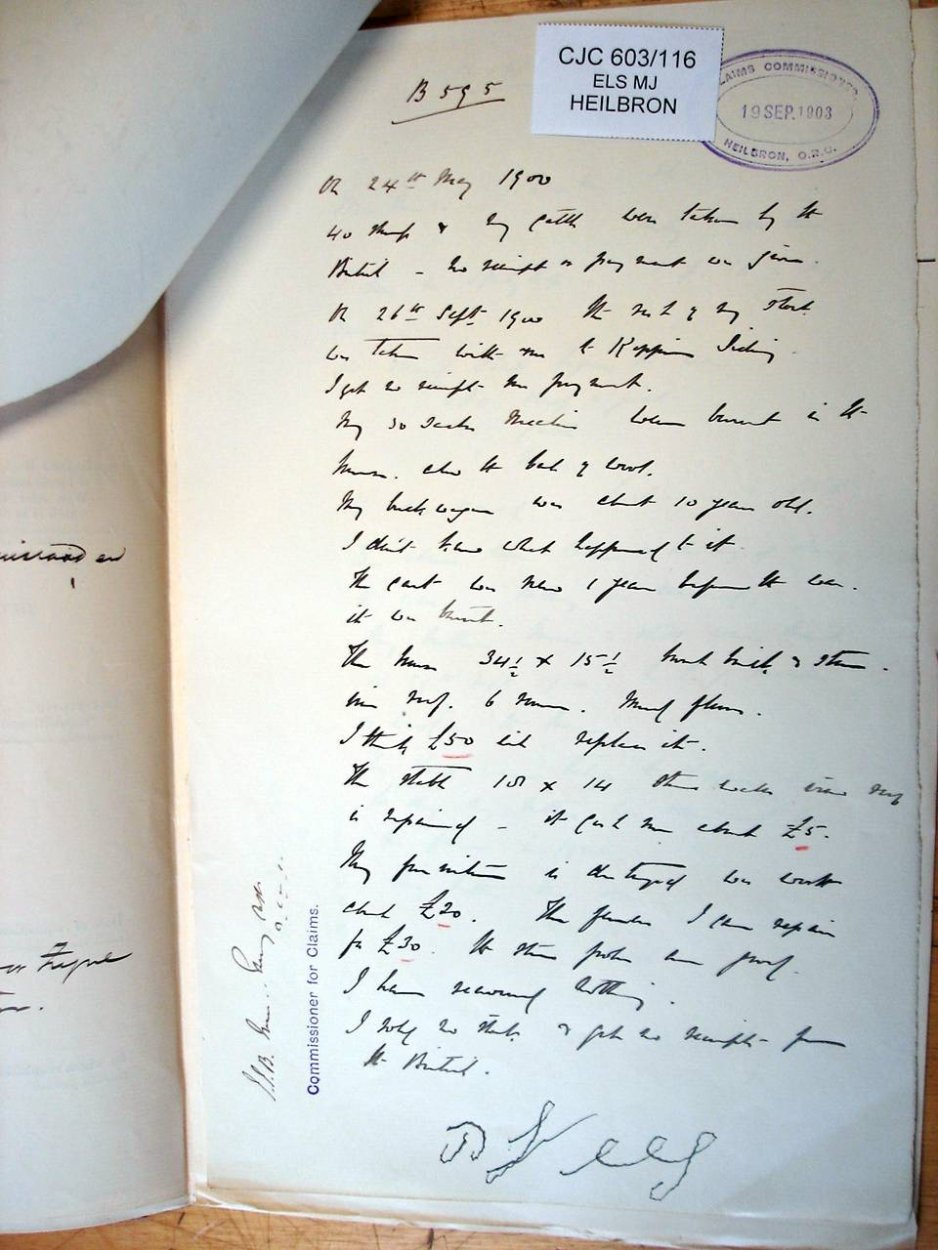 CJC 603/116
ELS MJ
HEILBRON
CLAIMS COMMISSION
19 SEP. 1903
HEILBRON, O.R.C.
B 595
On 24th May 1900
40 sheep & my cattle were taken by the
British - no receipt or payment was given.
On 26th Sept. 1900 the rest of my stock
was taken with me to Koppies Siding
I got no receipt nor payment.
My 30 sacks mealies were burnt in the
house. also the bale of wool.
My buck wagon was about 10 years old.
I don't know what happened to it.
The cart was new 1 year before the war.
it was burnt.
The house 34½ x 15½ burnt brick & stone.
iron roof. 6 rooms. Mud floors.
I think £50 will replace it.
The stable 18 x 14 stone walls iron roof
is repaired - it cost me about £5.
My furniture is destroyed was worth
about £20. The fences I can repair
for £30. the stone poles are good.
I have received nothing.
I sold no stock & got no receipt from
the British.
Commissioner for Claims.